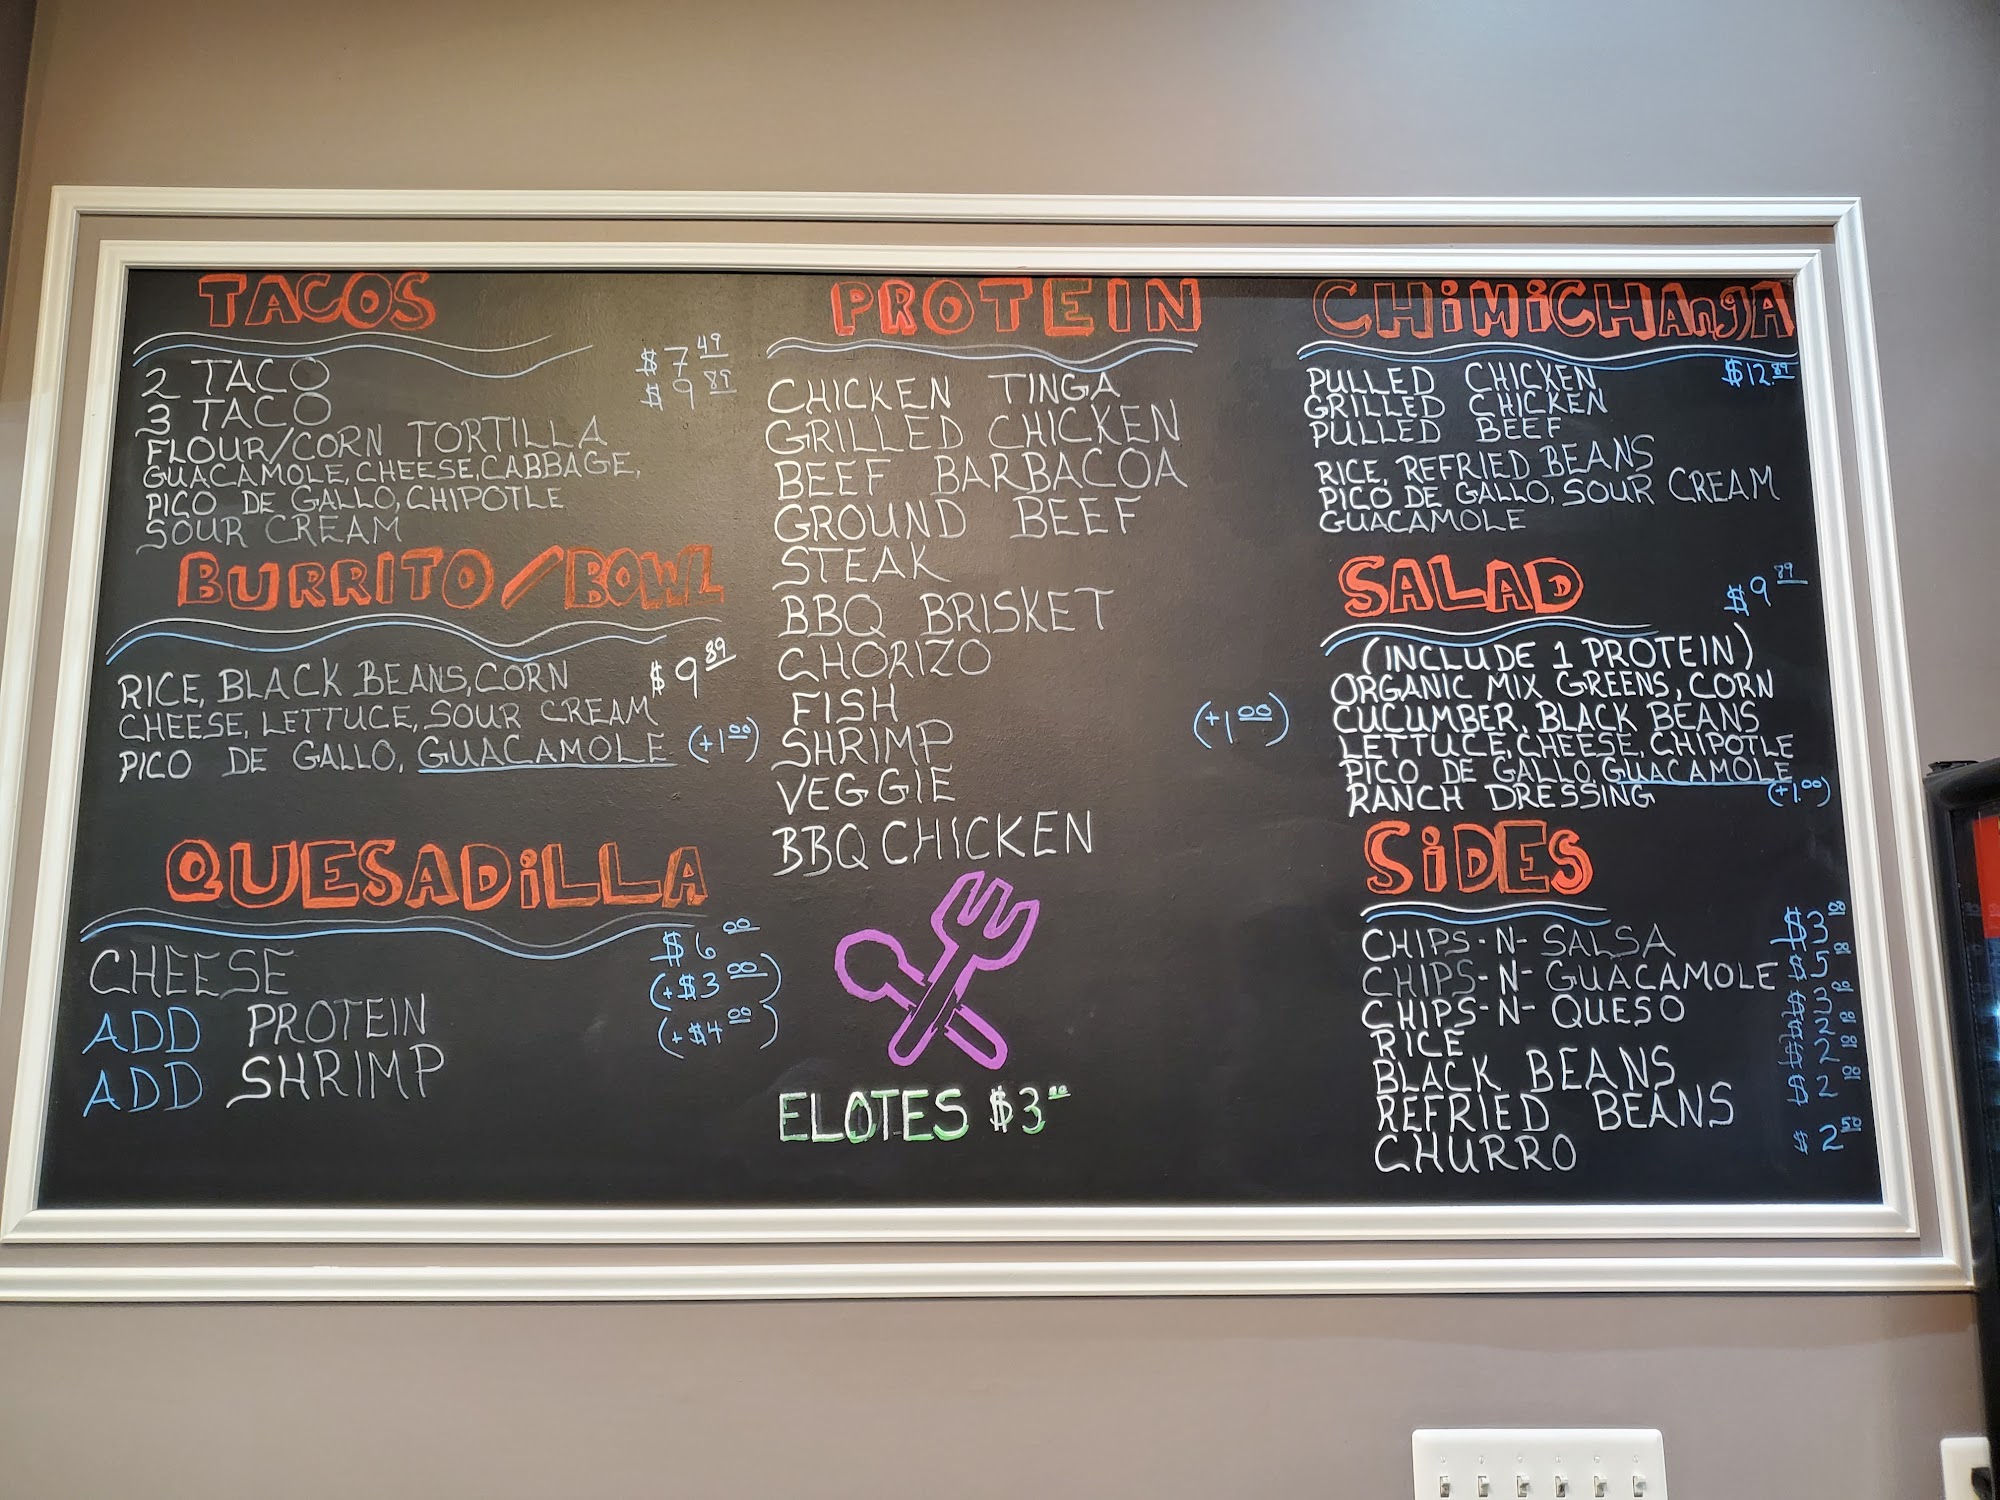 TACOS
2 TACO $7.49
3 TACO $9.89
FLOUR/CORN TORTILLA
GUACAMOLE, CHEESE, CABBAGE,
PICO DE GALLO, CHIPOTLE
SOUR CREAM
BURRITO/BOWL
RICE, BLACK BEANS, CORN $9.89
CHEESE, LETTUCE, SOUR CREAM
PICO DE GALLO, GUACAMOLE (+1.00)
QUESADiLLA
CHEESE $6.00
ADD PROTEIN (+$3.00)
ADD SHRIMP (+$4.00)
PROTEIN
CHICKEN TINGA
GRILLED CHICKEN
BEEF BARBACOA
GROUND BEEF
STEAK
BBQ BRISKET
CHORIZO
FISH
SHRIMP (+1.00)
VEGGIE
BBQ CHICKEN
ELOTES $3.00
CHiMiCHAngA
PULLED CHICKEN $12.89
GRILLED CHICKEN
PULLED BEEF
RICE, REFRIED BEANS
PICO DE GALLO, SOUR CREAM
GUACAMOLE
SALAD $9.89
(INCLUDE 1 PROTEIN)
ORGANIC MIX GREENS, CORN
CUCUMBER, BLACK BEANS
LETTUCE, CHEESE, CHIPOTLE
PICO DE GALLO, GUACAMOLE
RANCH DRESSING (+1.00)
SiDES
CHIPS-N-SALSA $3.00
CHIPS-N-GUACAMOLE $5.00
CHIPS-N-QUESO $3.00
RICE $2.00
BLACK BEANS $2.00
REFRIED BEANS $2.00
CHURRO $2.50